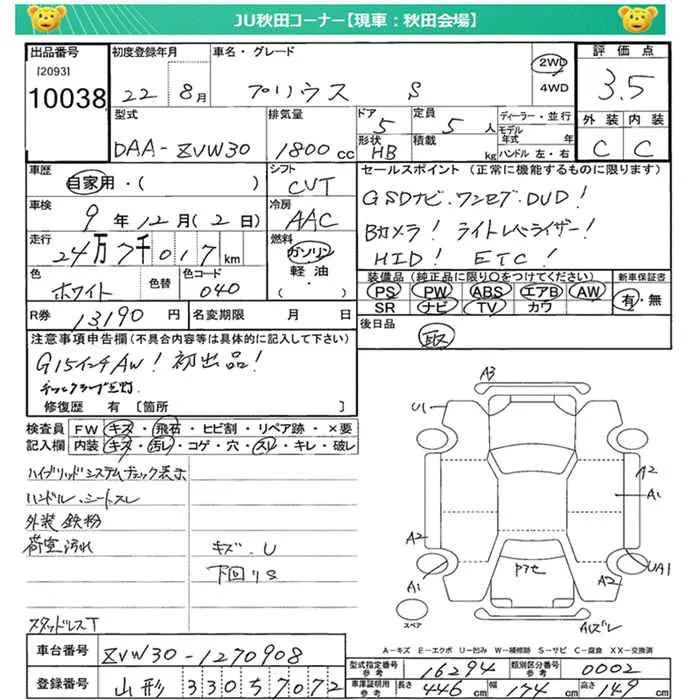 JU秋田コーナー【現車：秋田会場】
出品番号
[2093]
10038
初度登録年月
22 8月
車名・グレード
プリウス S
2WD
4WD
評価点
3.5
外装 内装
C C
型式
DAA-ZVW30
排気量
1800 cc
ドア 5
形状 HB
定員 5 人
積載 kg
ディーラー・並行
モデル年式 年
ハンドル 左・右
車歴
自家用・( )
シフト
CVT
セールスポイント（正常に機能するものに限ります）
GSDナビ.ワンセグ.DVD!
Bカメラ! ライトレベライザー!
HID! ETC!
車検
9年12月(2日)
冷房
AAC
走行
24万7千017km
燃料
ガソリン
軽油
( )
色
ホワイト
色替
色コード
040
装備品（純正品に限り○をつけてください）
PS PW ABS エアB AW
SR ナビ TV カワ
新車保証書
有・無
R券
13,190円
名変期限 月 日
後日品
取
注意事項申告欄（不具合内容等は具体的に記入して下さい）
G15インチAW! 初出品!
修復歴 有 [箇所 ]
検査員記入欄
FW キズ・飛石・ヒビ割・リペア跡・×要
内装 キズ・汚レ・コゲ・穴・スレ・キレ・破レ
ハイブリッドシステムチェック表示
ハンドル.シートスレ
外装 鉄粉
荷室汚れ
キズ.U
下回りS
スタッドレスT
A3
U1
A2
A1
A2
A1
Pアセ
A2
UA1
A1ズレ
スペア
A－キズ E－エクボ U－凹み W－補修跡 S－サビ C－腐食 XX－交換済
車台番号
ZVW30-1270908
登録番号
山形 330 ち 7072
型式指定番号 参考
16294
類別区分番号 参考
0002
車庫証明用 参考
長さ 446cm 幅 174cm 高さ 149cm